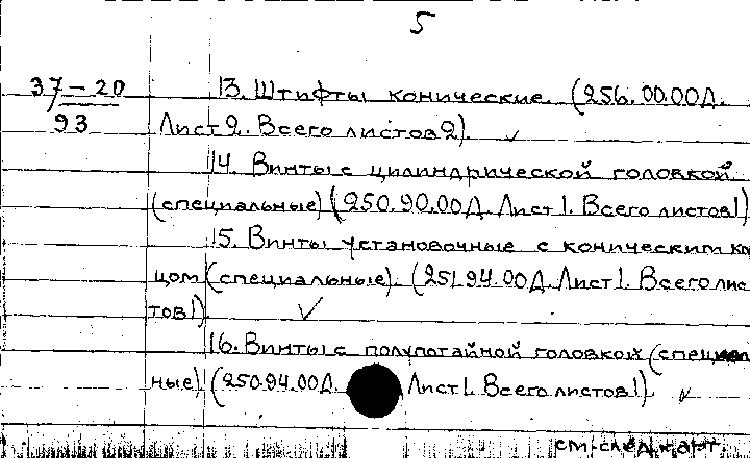 5
37-20
93
13. Штифты конические (256.00.00Д.
Лист 2. Всего листов 2).
14. Винты с цилиндрической головкой
(специальные) (250.90.00Д. Лист 1. Всего листов 1)
15. Винты установочные с коническим ко
цом (специальные). (251.94.00Д. Лист 1. Всего лис
тов 1)
16. Винты с полупотайной головкой (специаль
ные). (250.94.00Д. Лист 1. Всего листов 1).
см. след. карт.